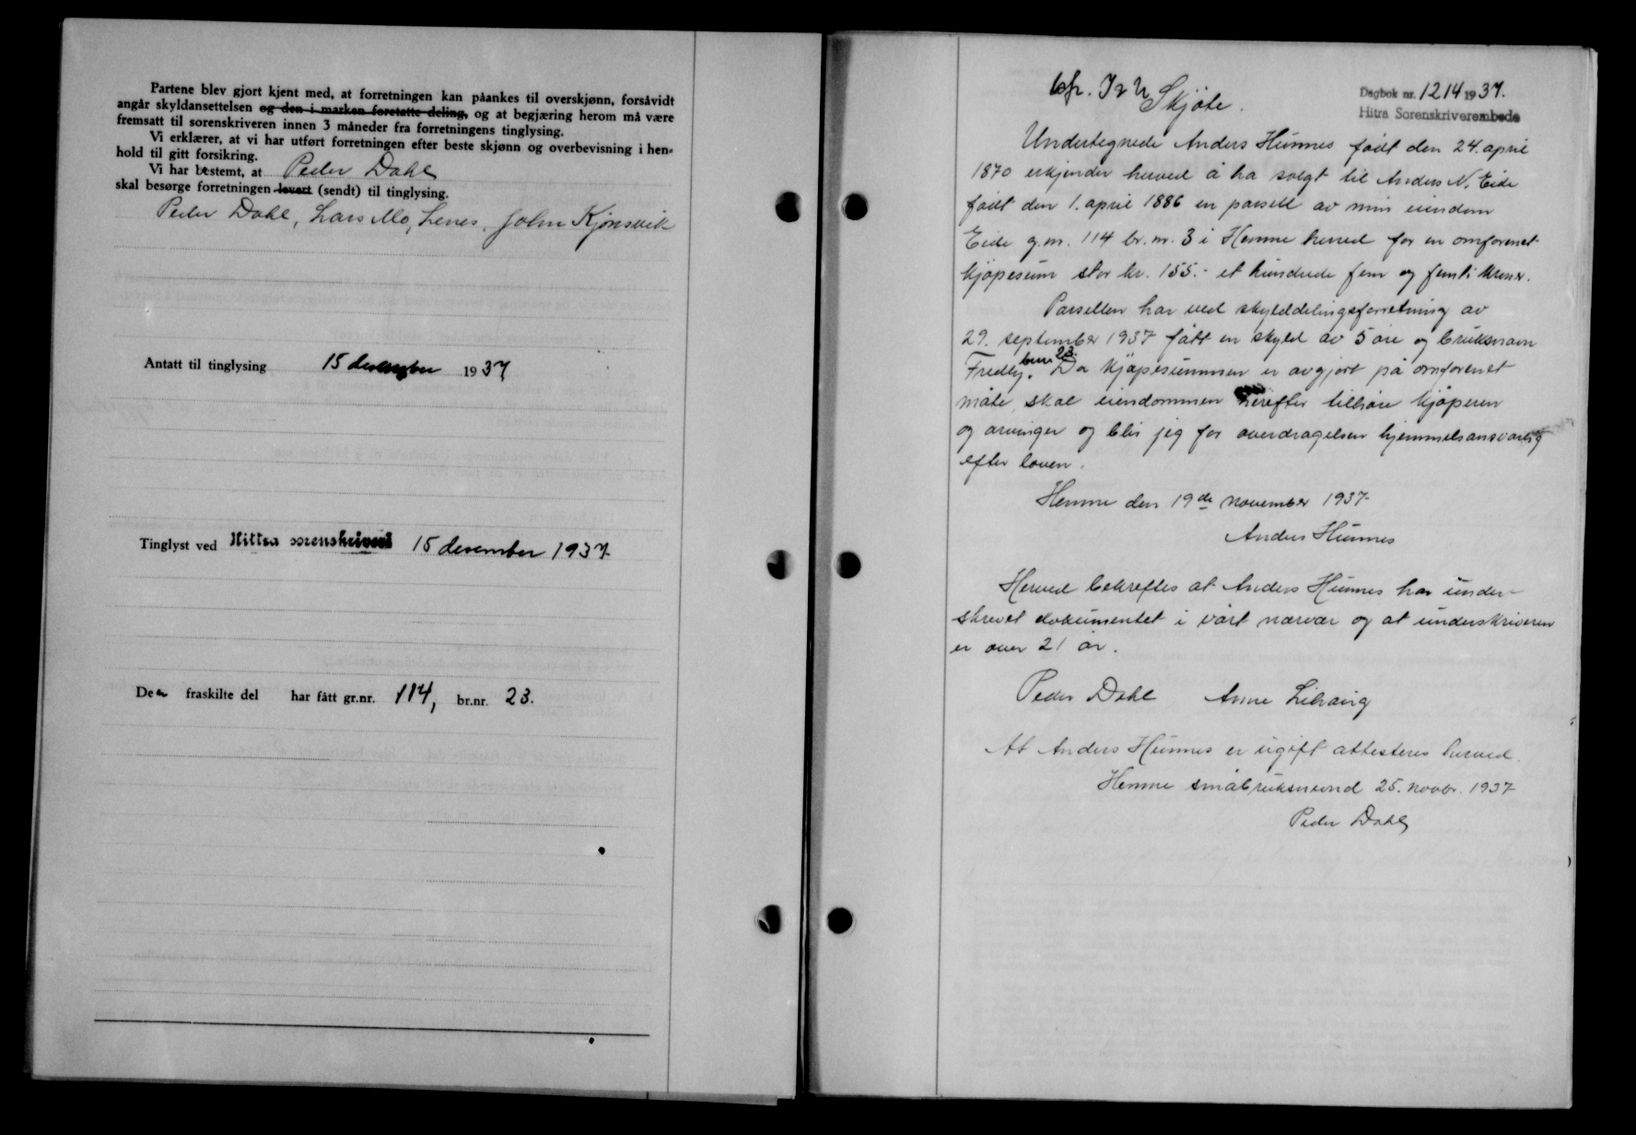 Partene blev gjort kjent med, at forretningen kan påankes til overskjønn, forsåvidt
angår skyldansettelsen og den i marken foretatte deling, og at begjæring herom må være
fremsatt til sorenskriveren innen 3 måneder fra forretningens tinglysing.
Vi erklærer, at vi har utført forretningen efter beste skjønn og overbevisning i hen-
hold til gitt forsikring.
Vi har bestemt, at Peder Dahl
skal besørge forretningen levert (sendt) til tinglysing.
Peder Dahl, Lars Mo, Lenes, John Kjønsvik
Antatt til tinglysing 15 desember 1937
Tinglyst ved Hittra sorenskriveri 15 desember 1937
Den fraskilte del har fått gr.nr. 114, br.nr. 23.
Skjøte.
Dagbok nr. 1214 1937.
Hitra Sorenskriverembede
Undertegnede Anders Hunnes født den 24. april
1870 erkjender herved å ha solgt til Anders N. Eide
født den 1. april 1886 en parsell av min eiendom
Eide g.nr. 114 br.nr. 3 i Hemne herred for en omforenet
kjøpesum stor kr. 155.- et hundrede fem og femti kroner.
Parsellen har ved skylddelingsforretning av
29. september 1937 fått en skyld av 5 øre og bruksnavn
Fredly. brnr 23. Da kjøpesummen er avgjort på omforenet
måte, skal eiendommen herefter tilhøre kjøperen
og arvinger og blir jeg for overdragelsen hjemmelsansvarlig
efter loven.
Hemne den 19de november 1937
Anders Hunnes
Herved bekreftes at Anders Hunnes har under-
skrevet dokumentet i vårt nærvær og at underskriveren
er over 21 år.
Peder Dahl Anne
At Anders Hunnes er ugift attesteres herved.
Hemne småbruksnevnd 25. novbr. 1937
Peder Dahl